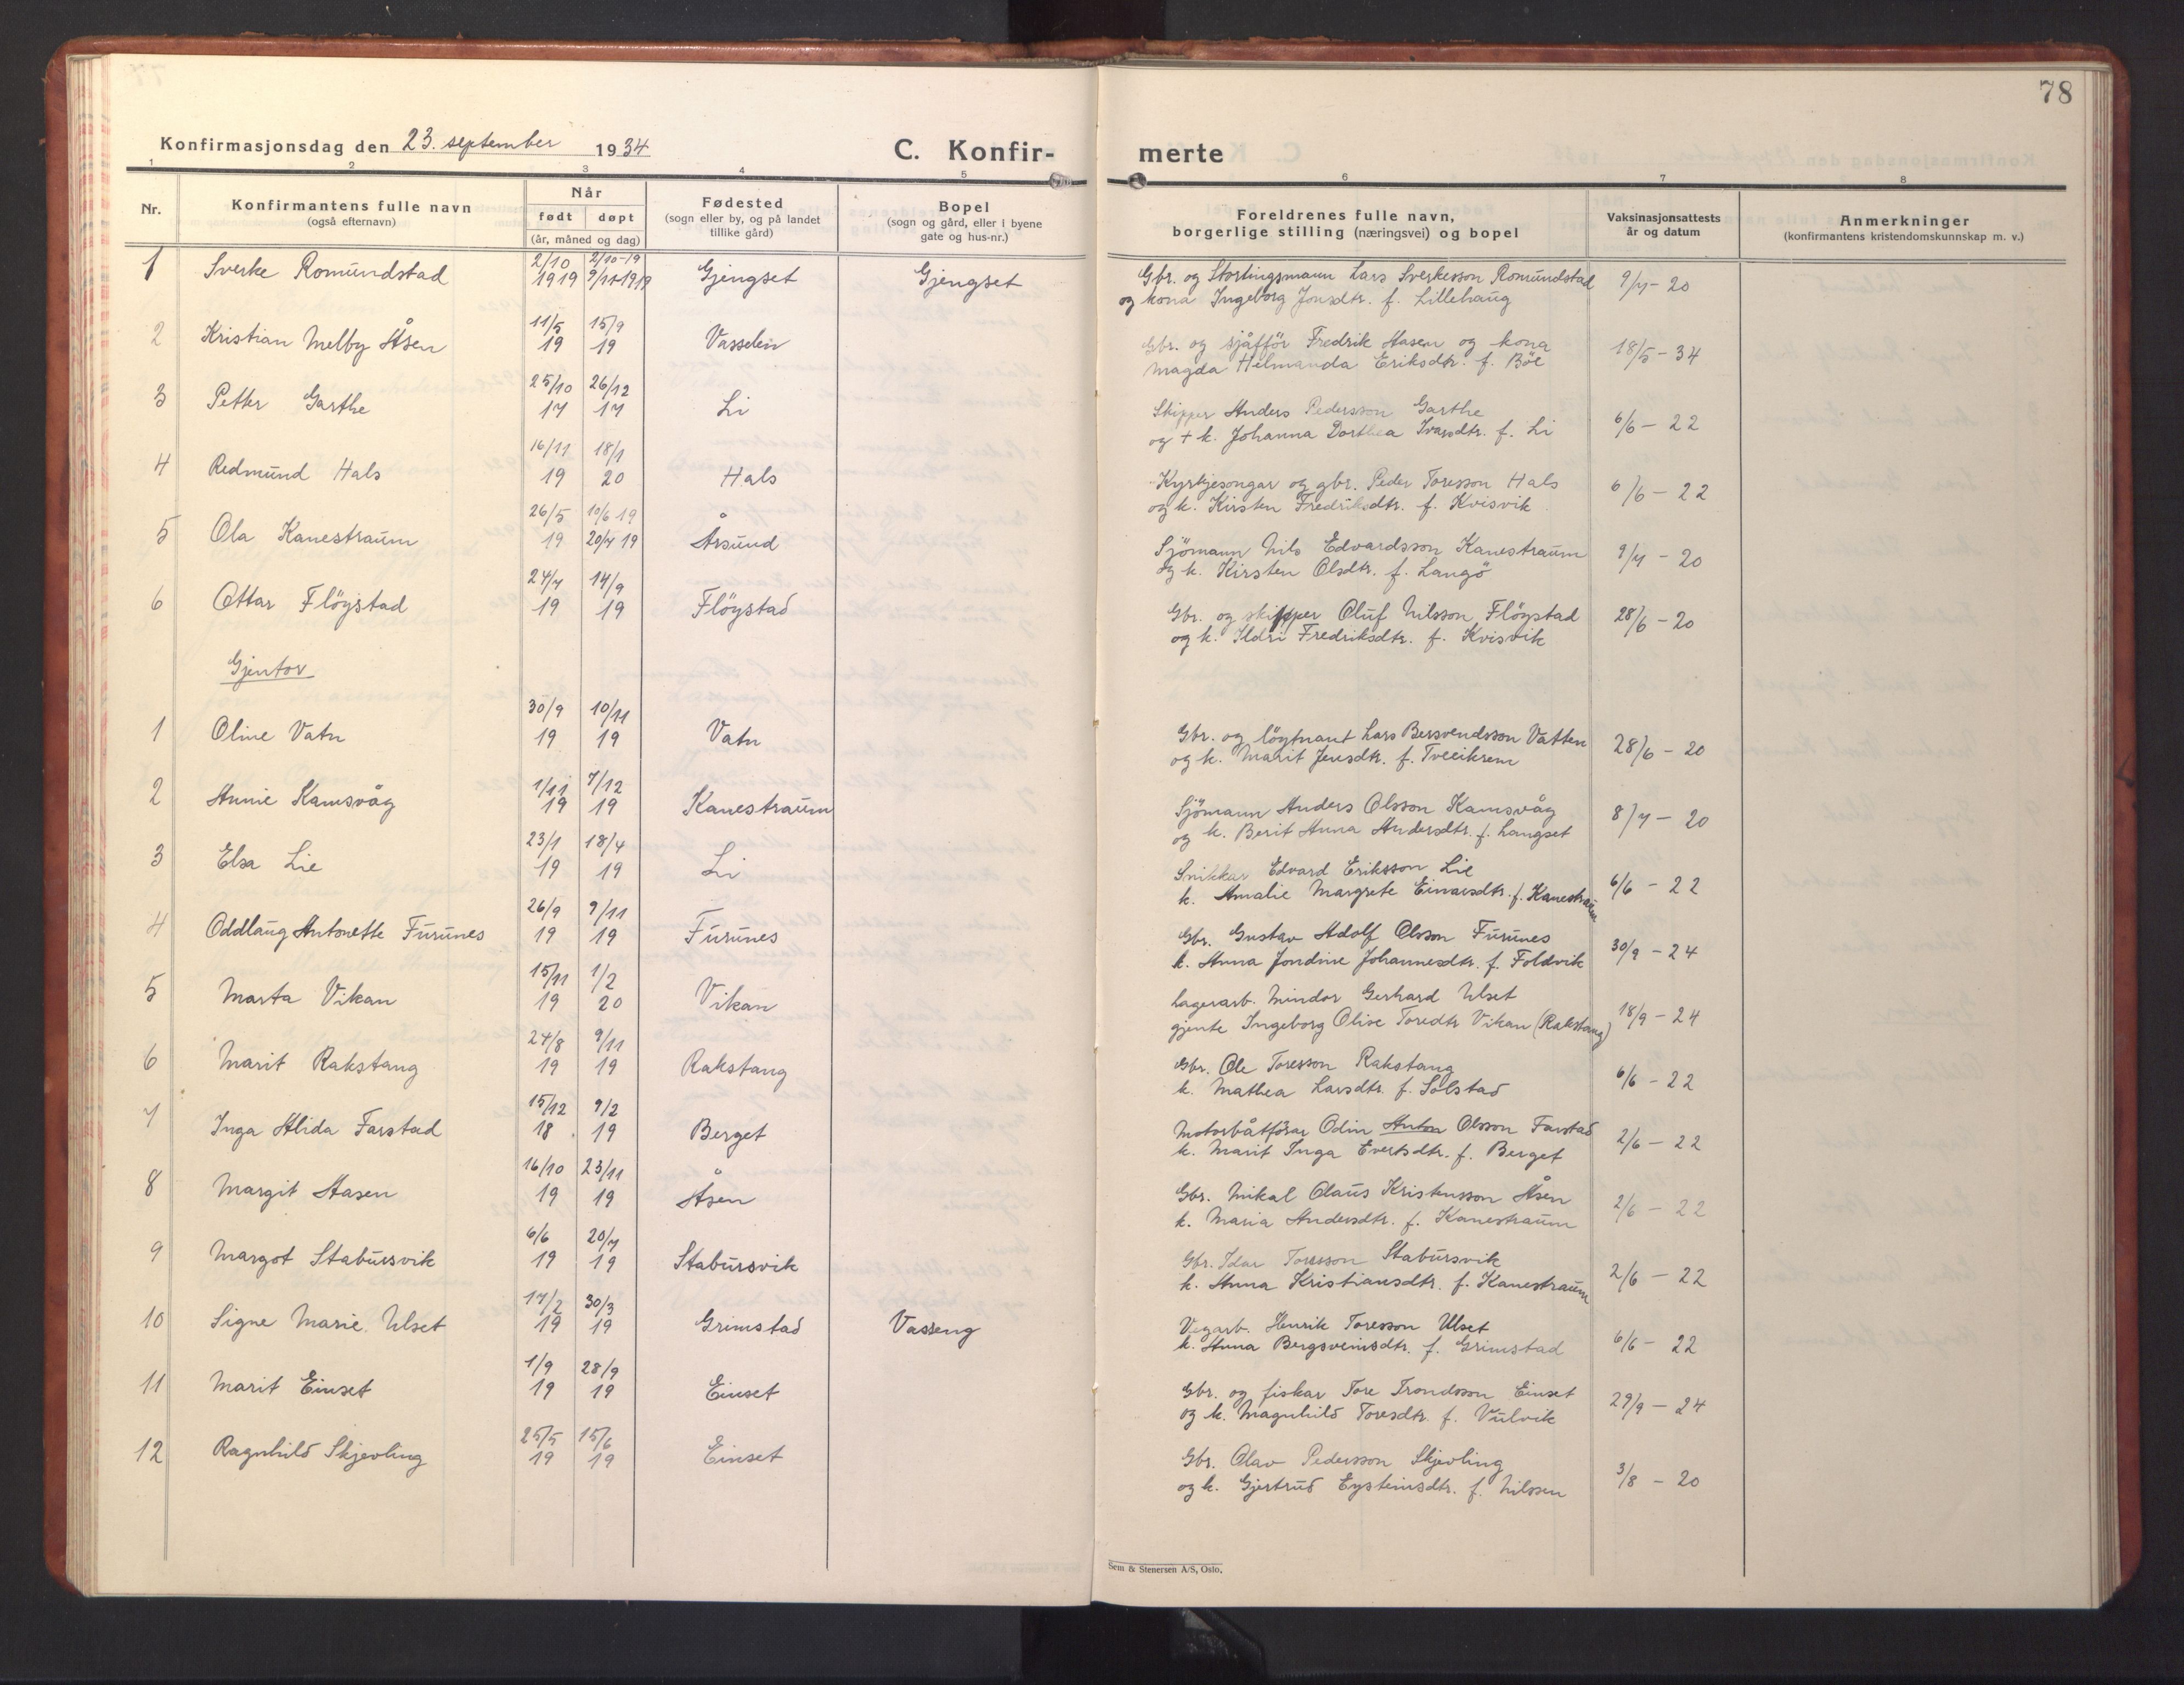 78
Konfirmasjonsdag den 23. september 1934
C. Konfir-
merte
1 2 3 4 5 6 7 8
Nr.
Konfirmantens fulle navn
(også efternavn)
Når
født døpt
(år, måned og dag)
Fødested
(sogn eller by, og på landet
tillike gård)
Bopel
(sogn og gård, eller i byene
gate og hus-nr.)
Foreldrenes fulle navn,
borgerlige stilling (næringsvei) og bopel
Vaksinasjonsattests
år og datum
Anmerkninger
(konfirmantens kristendomskunnskap m. v.)
1 Sverke Romundstad 2/10 1919 2/10-19 9/11-1919 Gjengset Gjengset
Gbr. og Stortingsmann Lars Sverkesson Romundstad 9/7-20
og kona Ingeborg Jonsdtr. f. Lillehaug
2 Kristian Melby Åsen 11/5 19 15/9 19 Vasselen
Gbr. og sjåfför Fredrik Aasen og kona 18/5-34
Magda Helmanda Eriksdtr. f. Böe
3 Petter Garthe 25/10 17 26/12 17 Li
Skipper Anders Pedersson Garthe 6/6-22
og + k. Johanna Dorthea Ivarsdtr. f. Li
4 Redmund Hals 16/11 19 18/1 20 Hals
Kyrkjesongar og gbr. Peder Toresson Hals 6/6-22
og k. Kirsten Fredriksdtr. f. Kvisvik
5 Ola Kanestraum 26/5 19 10/6 19 20/7 19 Årsund
Sjömann Nils Edvardsson Kanestraum 9/7-20
og k. Kirsten Olsdtr. f. Langö
6 Ottar Flöystad 24/7 19 14/9 19 Flöystad
Gbr. og skipper Oluf Nilsson Flöystad 28/6-20
og k. Ildri Fredriksdtr. f. Kvisvik
Gjentor
1 Oline Vatn 30/9 19 10/11 19 Vatn
Gbr. og löytnant Lars Bersvendsson Vatten 28/6-20
og k. Marit Jensdtr. f. Tveeikrem
2 Annie Kamsvåg 1/11 19 7/12 19 Kanestraum
Sjömann Anders Olsson Kamsvåg 8/7-20
og k. Berit Anna Andersdtr. f. Langset
3 Elsa Lie 23/1 19 18/4 19 Li
Snikkar Edvard Eriksson Lie 6/6-22
k. Amalie Margrete Einarsdtr. f. Kanestraum
4 Oddlaug Antonette Furunes 26/9 19 9/11 19 Furunes
Gbr. Gustav Adolf Olsson Furunes 30/9-24
k. Anna Jondine Johannesdtr. f. Foldvik
5 Marta Vikan 15/11 19 1/2 20 Vikan
Lagerarb. Mindor Gerhard Ulset 18/9-24
gjente Ingeborg Olise Toredtr Vikan (Rakstang)
6 Marit Rakstang 24/8 19 9/11 19 Rakstang
Gbr. Ole Toresson Rakstang 6/6-22
k. Mathea Larsdtr. f. Solstad
7 Inga Alida Farstad 15/12 18 9/2 19 Berget
Motorbåtförar Odin Anton Olsson Farstad 2/6-22
k. Marit Inga Evertsdtr. f. Berget
8 Margit Aasen 16/10 19 23/11 19 Åsen
Gbr. Mikal Olaus Kristensson Åsen 2/6-22
k. Maria Andersdtr. f. Kanestraum
9 Margot Stabursvik 6/6 19 20/7 19 Stabursvik
Gbr. Idar Toresson Stabursvik 2/6-22
k. Anna Kristiansdtr. f. Kanestraum
10 Signe Marie. Ulset 17/2 19 30/3 19 Grimstad Vasseng
Vegarb. Henrik Toresson Ulset 6/6-22
k. Anna Bergsveinsdtr. f. Grimstad
11 Marit Einset 1/9 19 28/9 19 Einset
Gbr. og fiskar Tore Trondsson Einset 29/9-24
og k. Magnhild Toresdtr. f. Vulvik
12 Ragnhild Skjevling 25/5 19 15/6 19 Einset
Gbr. Olav Pedersson Skjevling 3/8-20
og k. Gjertrud Eysteinsdtr. f. Nilssen
Sem & Stenersen A/S, Oslo.